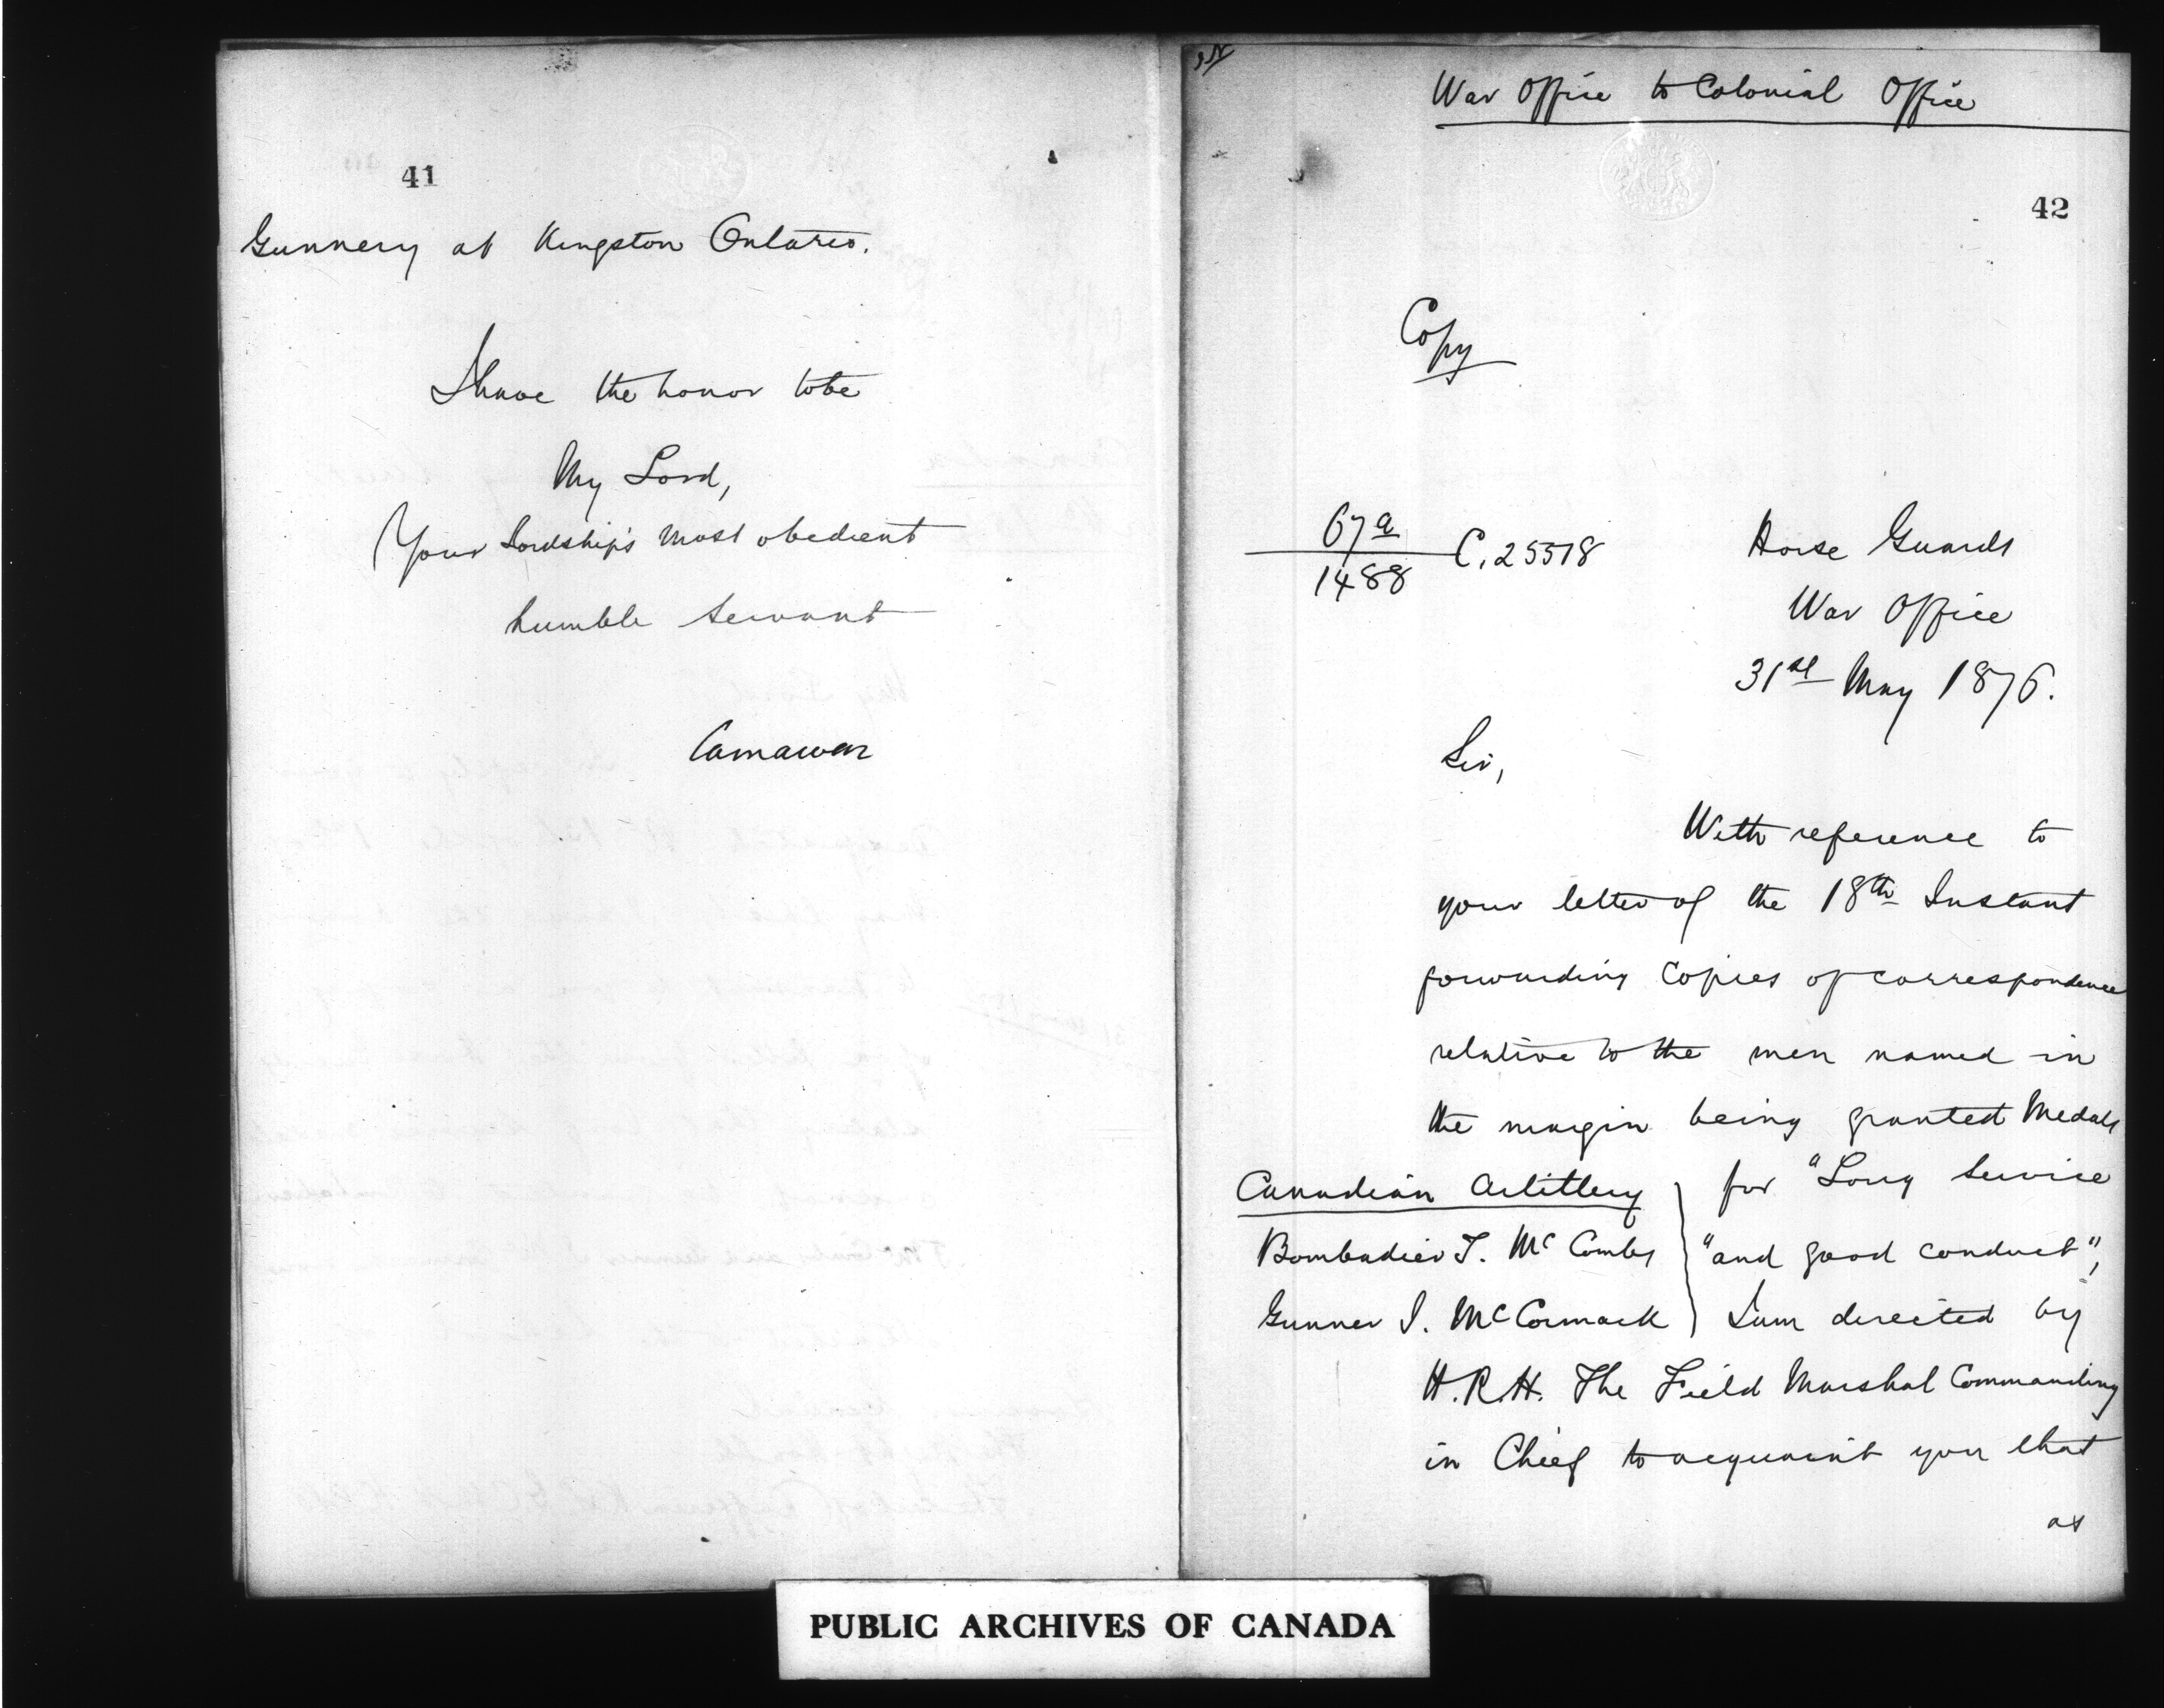 41
Gunnery at Kingston Ontario.
I have the honor to be
My Lord,
Your Lordship's most obedient
humble servant
Carnarvon
War Office to Colonial Office
42
Copy
67a
1488
C.25518
Horse Guards
War Office
31st May 1876.
Sir,
With reference to
your letter of the 18th Instant
forwarding Copies of correspondence
relative to the men named in
the margin being granted Medals
Canadian Artillery
Bombadier T. McCombs
Gunner J. McCormack
for "Long Service
"and good conduct",
I am directed by
H.R.H. The Field Marshal Commanding
in Chief to acquaint you that
as
PUBLIC ARCHIVES OF CANADA